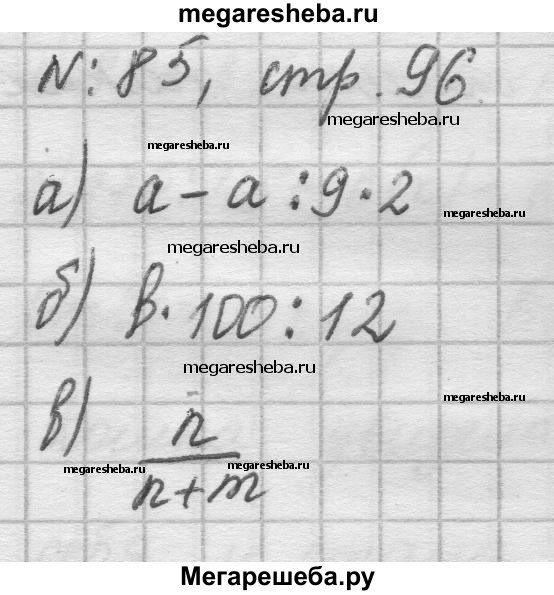 megaresheba.ru
№: 85, стр. 96
megaresheba.ru
megaresheba.ru
а) a - a : 9 · 2
megaresheba.ru
megaresheba.ru
б) в · 100 : 12
megaresheba.ru
в) n
megaresheba.ru megaresheba.ru
n + m
Мегарешеба.ру